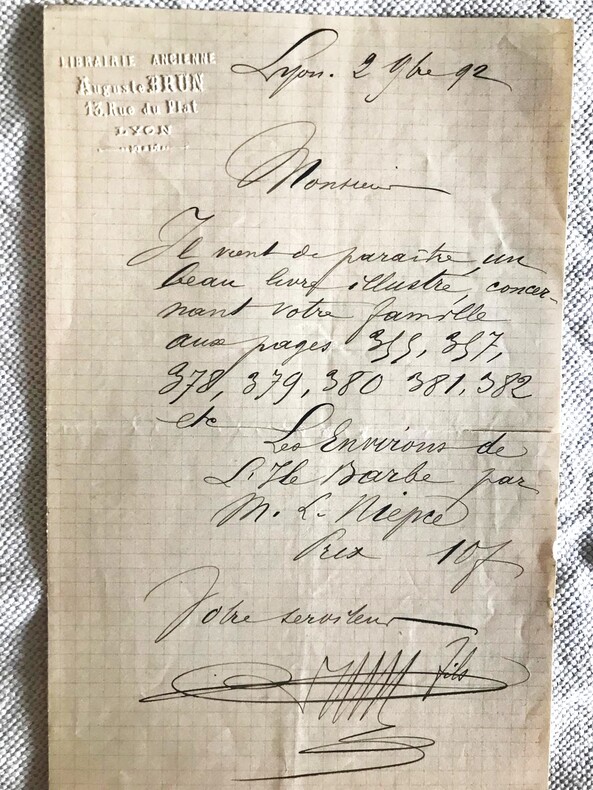 LIBRAIRIE ANCIENNE
Auguste BRUN
13, Rue du Plat
LYON
Lyon. 2 9bre 92
Monsieur
Il vient de paraître, un
beau livre illustré, concer-
nant votre famille
aux pages 355, 357,
378, 379, 380 381, 382
etc
Les Environs de
L'Ile Barbe par
M. L. Niepce
Prix 10f
Votre serviteur
fils